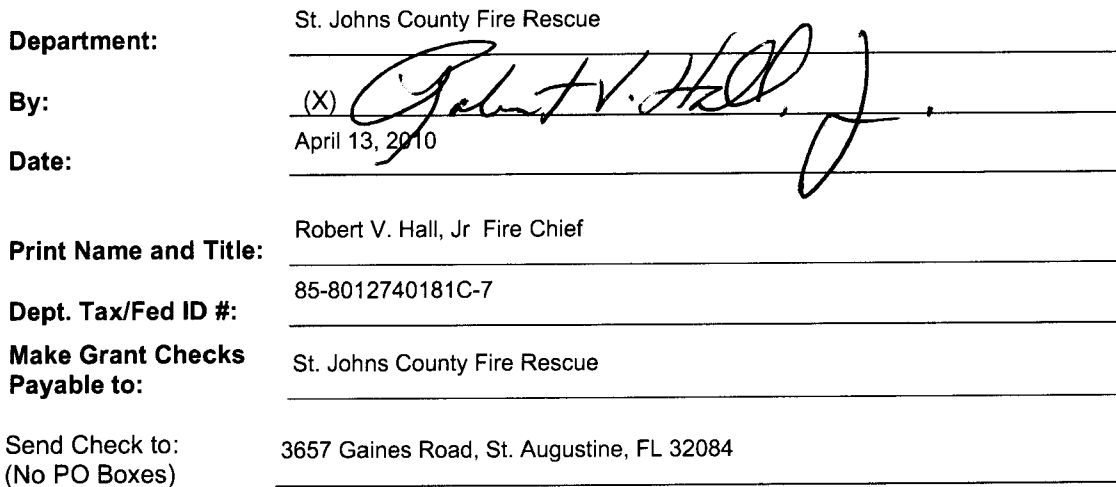 Department: St. Johns County Fire Rescue
By: (X) Robert V. Hall, Jr.
Date: April 13, 2010
Print Name and Title: Robert V. Hall, Jr Fire Chief
Dept. Tax/Fed ID #: 85-8012740181C-7
Make Grant Checks
Payable to: St. Johns County Fire Rescue
Send Check to: 3657 Gaines Road, St. Augustine, FL 32084
(No PO Boxes)